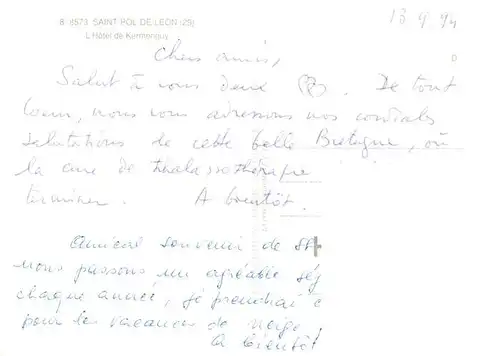 B 8573 SAINT POL DE LEON (29)
L'Hôtel de Kermenguy
13.9.94
Chers amis,
Salut à vous deux. De tout
coeur, nous vous adressons nos cordiales
salutations de cette belle Bretagne, où
la cure de thalassothérapie
terminer. A bientôt.
Amical souvenir de St
nous passons un agréable séj
chaque année, je prendrai
pour les vacances de neige!
A bientôt